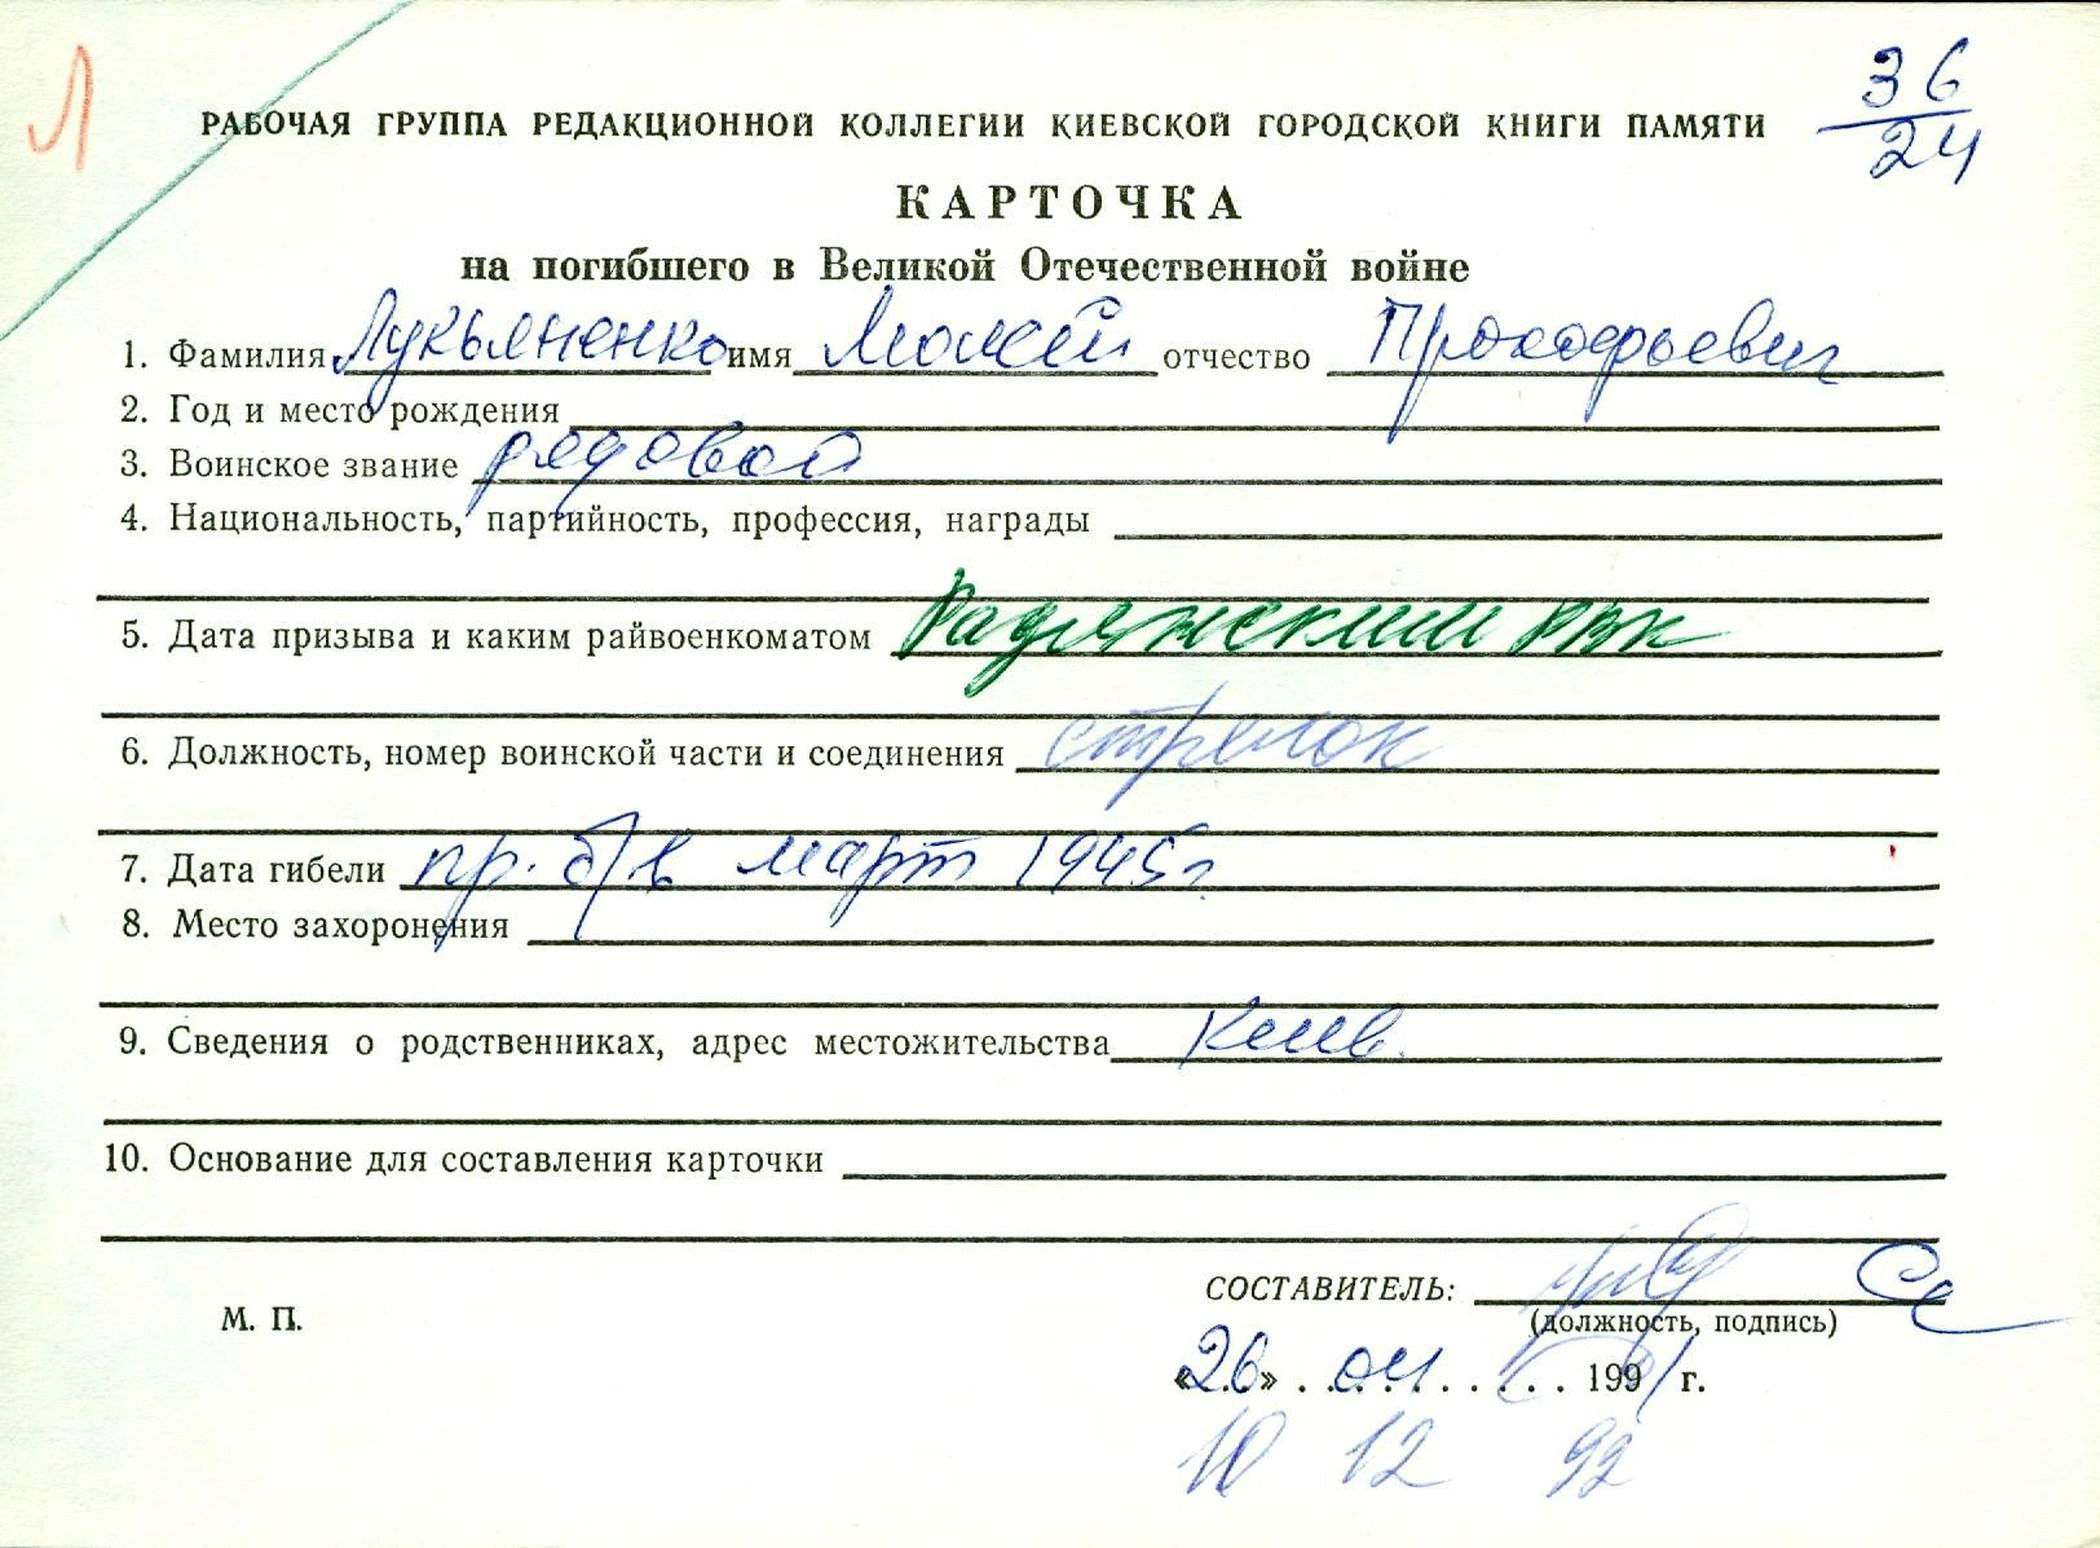 Л
36
24
РАБОЧАЯ ГРУППА РЕДАКЦИОННОЙ КОЛЛЕГИИ КИЕВСКОЙ ГОРОДСКОЙ КНИГИ ПАМЯТИ
КАРТОЧКА
на погибшего в Великой Отечественной войне
1. Фамилия Лукьяненко имя отчество Прокофьевич
2. Год и место рождения
3. Воинское звание рядовой
4. Национальность, партийность, профессия, награды
5. Дата призыва и каким райвоенкоматом Радянский РВК
6. Должность, номер воинской части и соединения стрелок
7. Дата гибели пр. б/в март 1945 г.
8. Место захоронения
9. Сведения о родственниках, адрес местожительства Киев.
10. Основание для составления карточки
СОСТАВИТЕЛЬ:
М. П.
(должность, подпись)
«26» 04 1991 г.
10 12 92